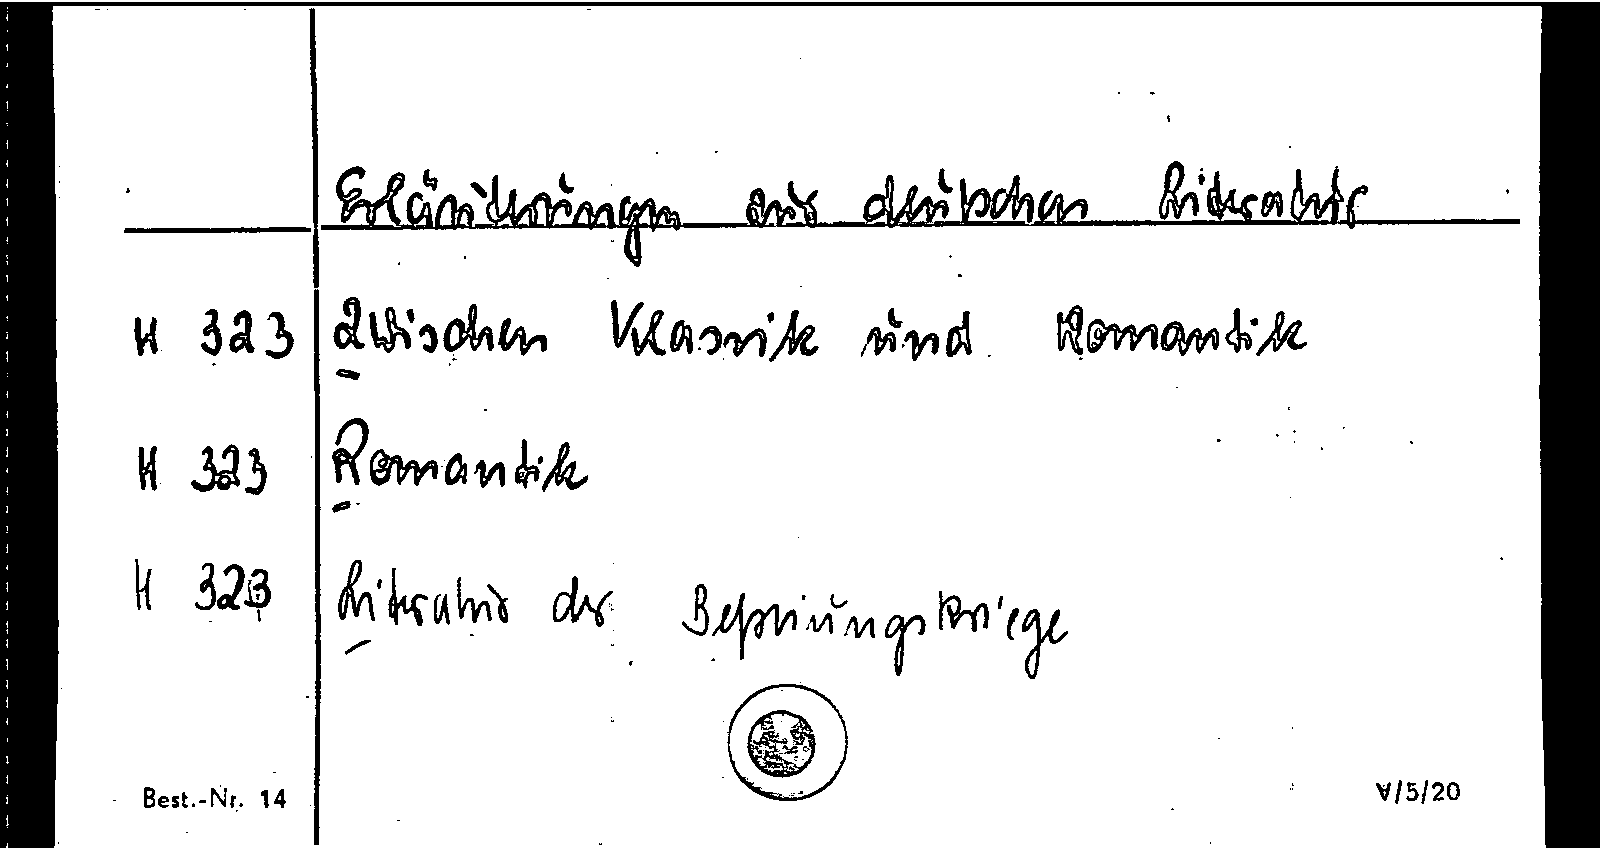 Erläuterungen zur deutschen Literatur
H 323 Zwischen Klassik und Romantik
H 323 Romantik
H 323 Literatur der Befreiungskriege
Best.-Nr. 14 V/5/20